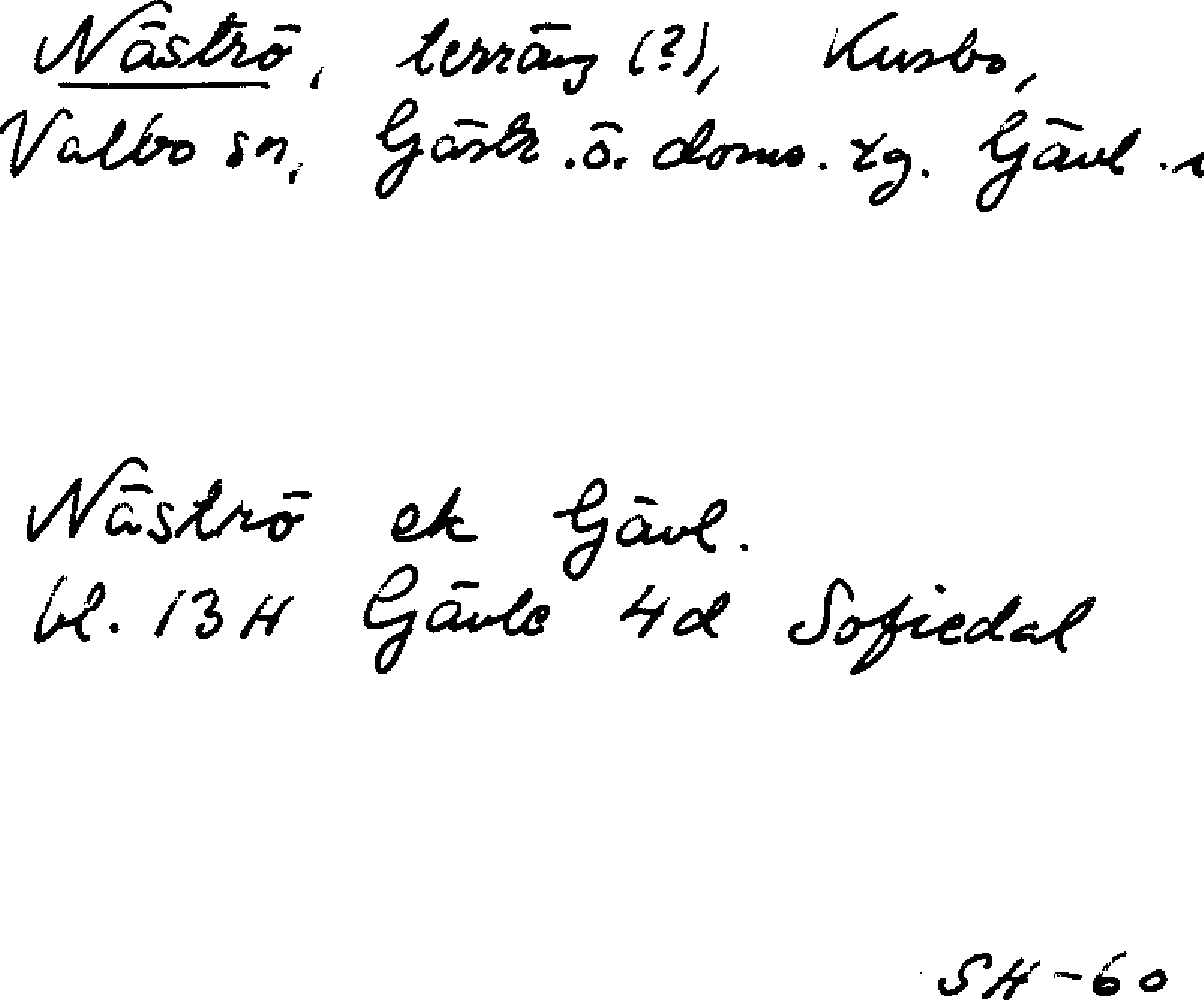 Näströ, terräng (?), Kusbo,
Valbo sn, Gästr.ö. doms. tg. Gävl.
Näströ ek Gävl.
bl. 13H Gävle 4d Sofiedal
SH-60